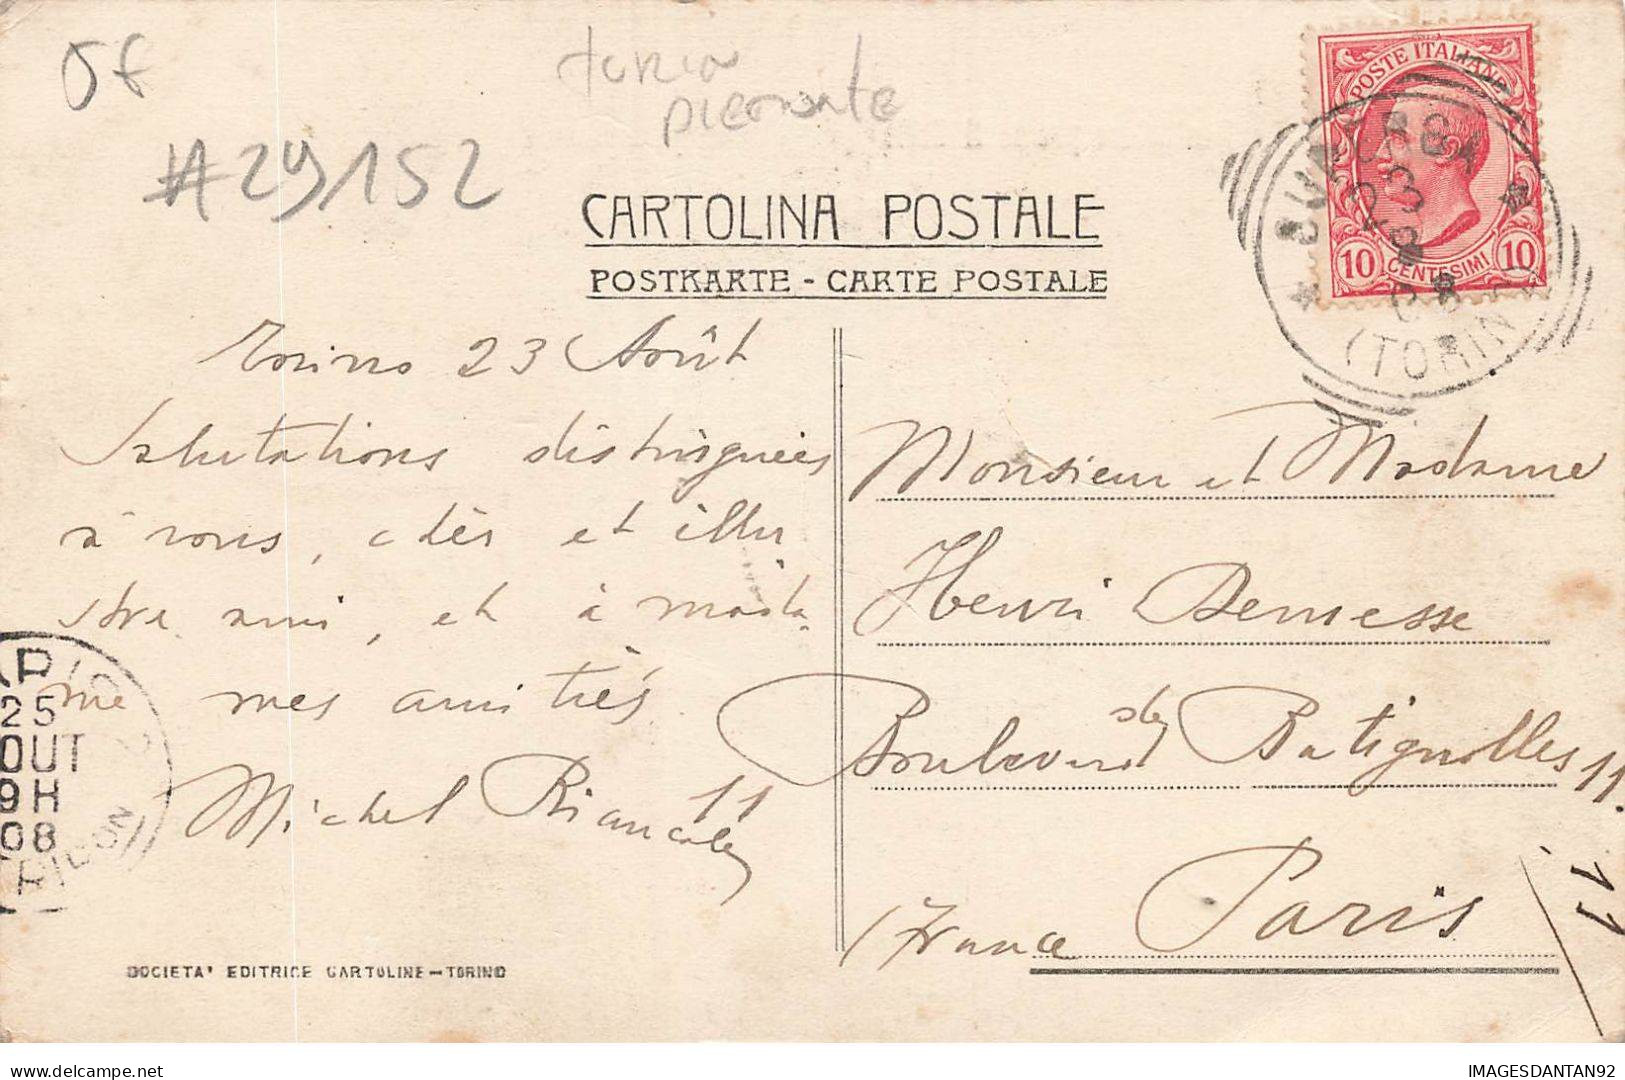 5f
#29152
torino
piemonte
CARTOLINA POSTALE
POSTKARTE - CARTE POSTALE
POSTE ITALIANE
10 CENTESIMI 10
23 8 08
(TORINO)
Torino 23 Août
Salutations distinguées
à vous, cher et illu-
stre ami, et à mada-
me mes amitiés
Michel
Monsieur et Madame
Henri Demesse
11 Boulevard des Batignolles 11.
11
Paris
(France
25
OUT
9H
08
SOCIETA' EDITRICE CARTOLINE - TORINO
IMAGESDANTAN92